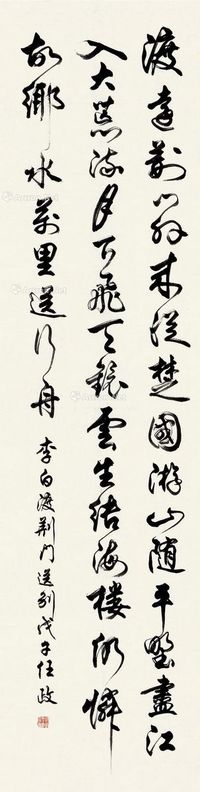 渡远荆门外来从楚国游山随平野尽江
入大荒流月下飞天镜云生结海楼仍怜
故乡水万里送行舟
李白渡荆门送别戊午任政